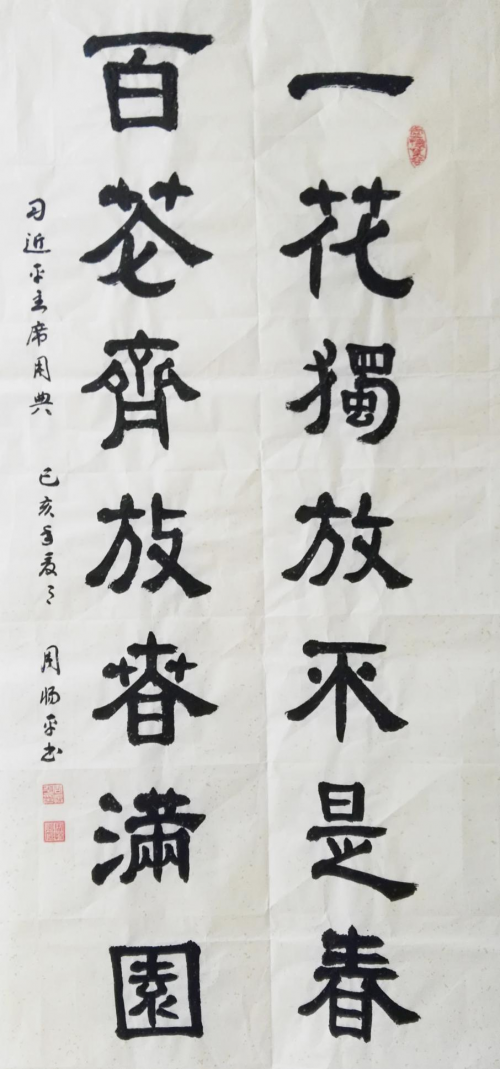 一花獨放不是春
百花齊放春滿園
习近平主席用典 己亥年夏之 周
平书